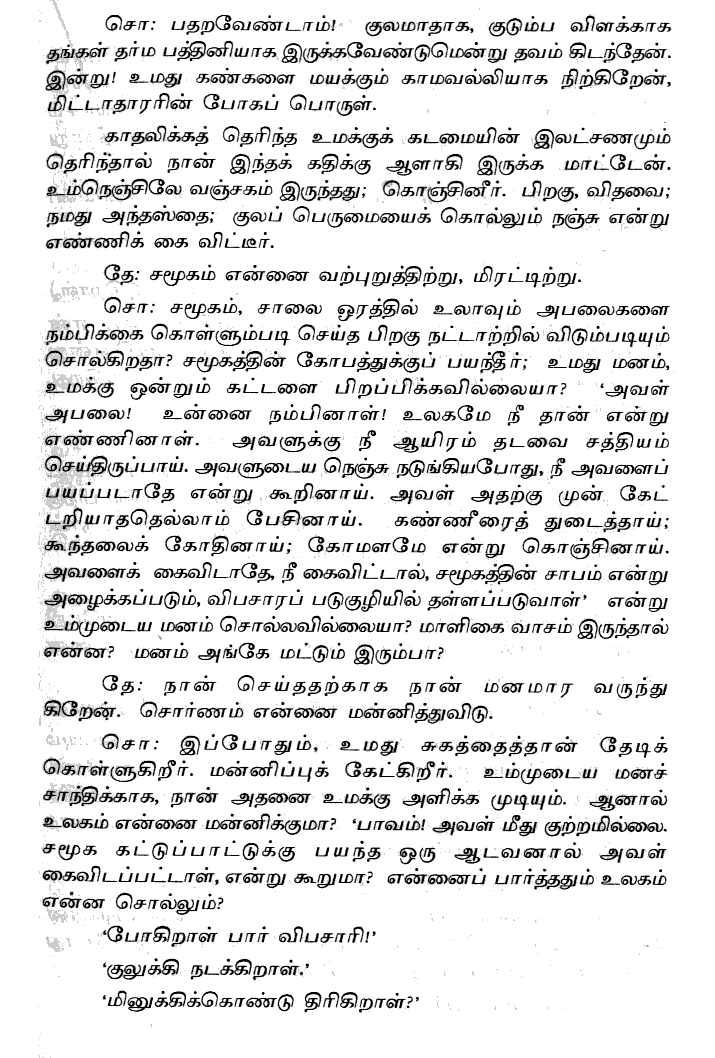 சொ: பதறவேண்டாம்! குலமாதாக, குடும்ப விளக்காக
தங்கள் தர்ம பத்தினியாக இருக்கவேண்டுமென்று தவம் கிடந்தேன்.
இன்று! உமது கண்களை மயக்கும் காமவல்லியாக நிற்கிறேன்,
மிட்டாதாரரின் போகப் பொருள்.
காதலிக்கத் தெரிந்த உமக்குக் கடமையின் இலட்சணமும்
தெரிந்தால் நான் இந்தக் கதிக்கு ஆளாகி இருக்க மாட்டேன்.
உம்நெஞ்சிலே வஞ்சகம் இருந்தது; கொஞ்சினீர். பிறகு, விதவை;
நமது அந்தஸ்தை; குலப் பெருமையைக் கொல்லும் நஞ்சு என்று
எண்ணிக் கை விட்டீர்.
தே: சமூகம் என்னை வற்புறுத்திற்று, மிரட்டிற்று.
சொ: சமூகம், சாலை ஓரத்தில் உலாவும் அபலைகளை
நம்பிக்கை கொள்ளும்படி செய்த பிறகு நட்டாற்றில் விடும்படியும்
சொல்கிறதா? சமூகத்தின் கோபத்துக்குப் பயந்தீர்; உமது மனம்,
உமக்கு ஒன்றும் கட்டளை பிறப்பிக்கவில்லையா? ‘அவள்
அபலை! உன்னை நம்பினாள்! உலகமே நீ தான் என்று
எண்ணினாள். அவளுக்கு நீ ஆயிரம் தடவை சத்தியம்
செய்திருப்பாய். அவளுடைய நெஞ்சு நடுங்கியபோது, நீ அவளைப்
பயப்படாதே என்று கூறினாய். அவள் அதற்கு முன் கேட்
டறியாததெல்லாம் பேசினாய். கண்ணீரைத் துடைத்தாய்;
கூந்தலைக் கோதினாய்; கோமளமே என்று கொஞ்சினாய்.
அவளைக் கைவிடாதே, நீ கைவிட்டால், சமூகத்தின் சாபம் என்று
அழைக்கப்படும், விபசாரப் படுகுழியில் தள்ளப்படுவாள்’ என்று
உம்முடைய மனம் சொல்லவில்லையா? மாளிகை வாசம் இருந்தால்
என்ன? மனம் அங்கே மட்டும் இரும்பா?
தே: நான் செய்ததற்காக நான் மனமார வருந்து
கிறேன். சொர்ணம் என்னை மன்னித்துவிடு.
சொ: இப்போதும், உமது சுகத்தைத்தான் தேடிக்
கொள்ளுகிறீர். மன்னிப்புக் கேட்கிறீர். உம்முடைய மனச்
சாந்திக்காக, நான் அதனை உமக்கு அளிக்க முடியும். ஆனால்
உலகம் என்னை மன்னிக்குமா? ‘பாவம்! அவள் மீது குற்றமில்லை.
சமூக கட்டுப்பாட்டுக்கு பயந்த ஒரு ஆடவனால் அவள்
கைவிடப்பட்டாள், என்று கூறுமா? என்னைப் பார்த்ததும் உலகம்
என்ன சொல்லும்?
‘போகிறாள் பார் விபசாரி!’
‘குலுக்கி நடக்கிறாள்.’
‘மினுக்கிக்கொண்டு திரிகிறாள்?’